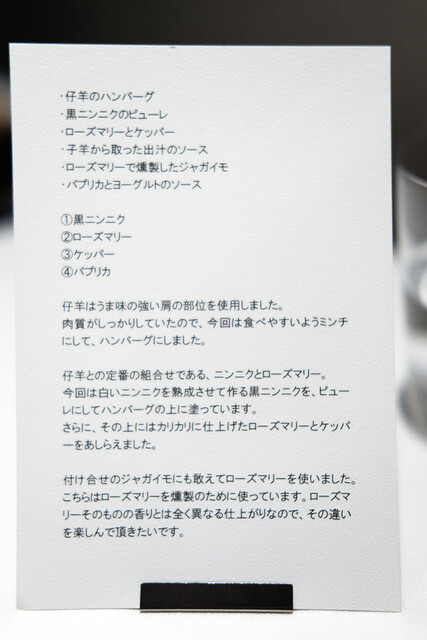 ・仔羊のハンバーグ
・黒ニンニクのピューレ
・ローズマリーとケッパー
・子羊から取った出汁のソース
・ローズマリーで燻製したジャガイモ
・パプリカとヨーグルトのソース
①黒ニンニク
②ローズマリー
③ケッパー
④パプリカ
仔羊はうま味の強い肩の部位を使用しました。
肉質がしっかりしていたので、今回は食べやすいようミンチ
にして、ハンバーグにしました。
仔羊との定番の組合せである、ニンニクとローズマリー。
今回は白いニンニクを熟成させて作る黒ニンニクを、ピュー
レにしてハンバーグの上に塗っています。
さらに、その上にはカリカリに仕上げたローズマリーとケッパ
ーをあしらえました。
付け合せのジャガイモにも敢えてローズマリーを使いました。
こちらはローズマリーを燻製のために使っています。ローズマ
リーそのものの香りとは全く異なる仕上がりなので、その違い
を楽しんで頂きたいです。